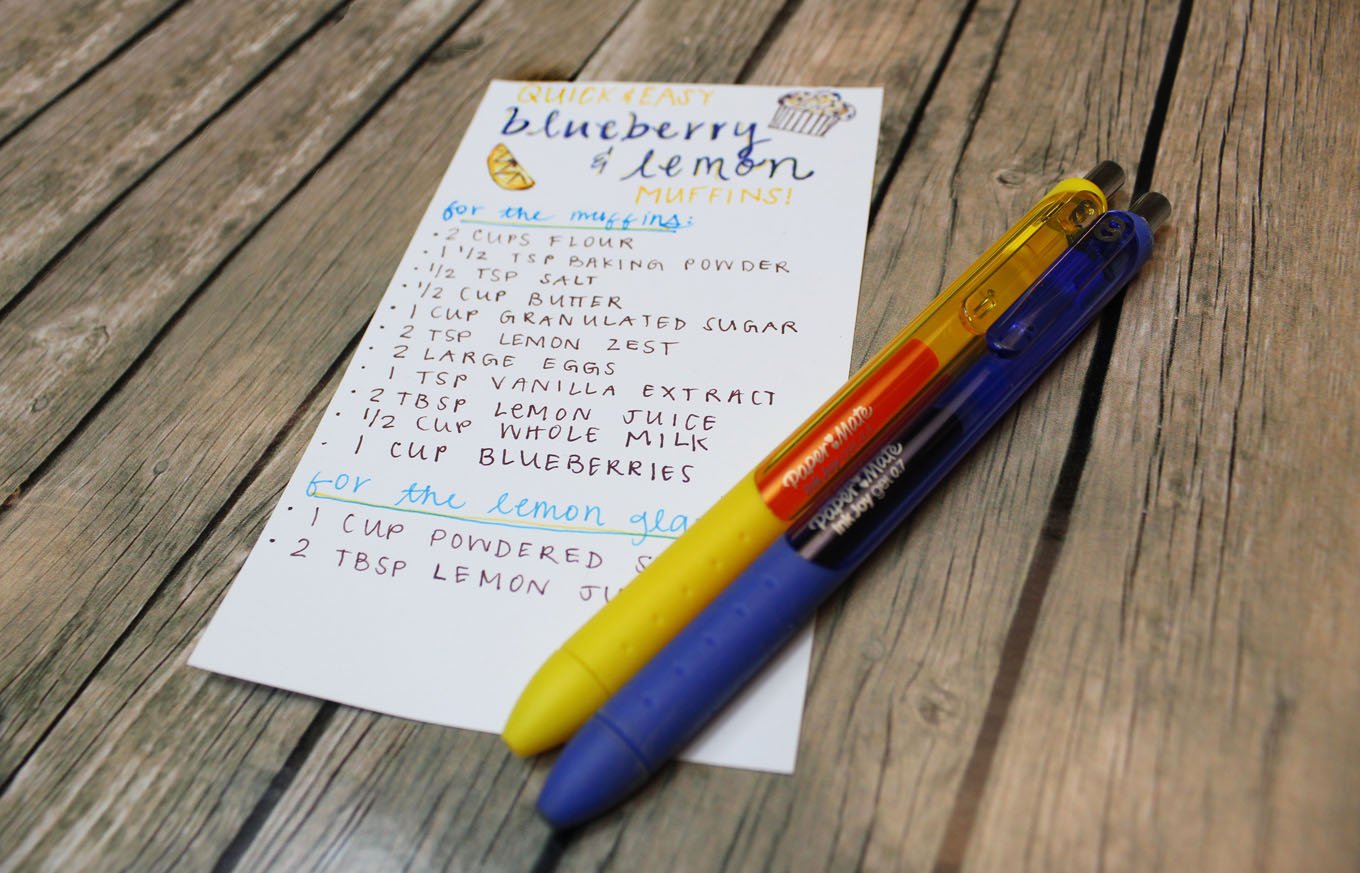 QUICK & EASY
blueberry
& lemon
MUFFINS!
for the muffins:
• 2 CUPS FLOUR
• 1 1/2 TSP BAKING POWDER
• 1/2 TSP SALT
• 1/2 CUP BUTTER
• 1 CUP GRANULATED SUGAR
• 2 TSP LEMON ZEST
• 2 LARGE EGGS
• 1 TSP VANILLA EXTRACT
• 2 TBSP LEMON JUICE
• 1/2 CUP WHOLE MILK
• 1 CUP BLUEBERRIES
for the lemon gla
• 1 CUP POWDERED S
• 2 TBSP LEMON JU
Paper Mate
Paper Mate
InkJoy Gel 0.7